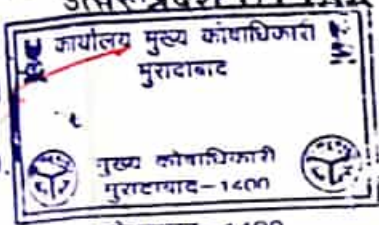 कार्यालय मुख्य कोषाधिकारी
मुरादाबाद
मुख्य कोषाधिकारी
मुरादाबाद-1400